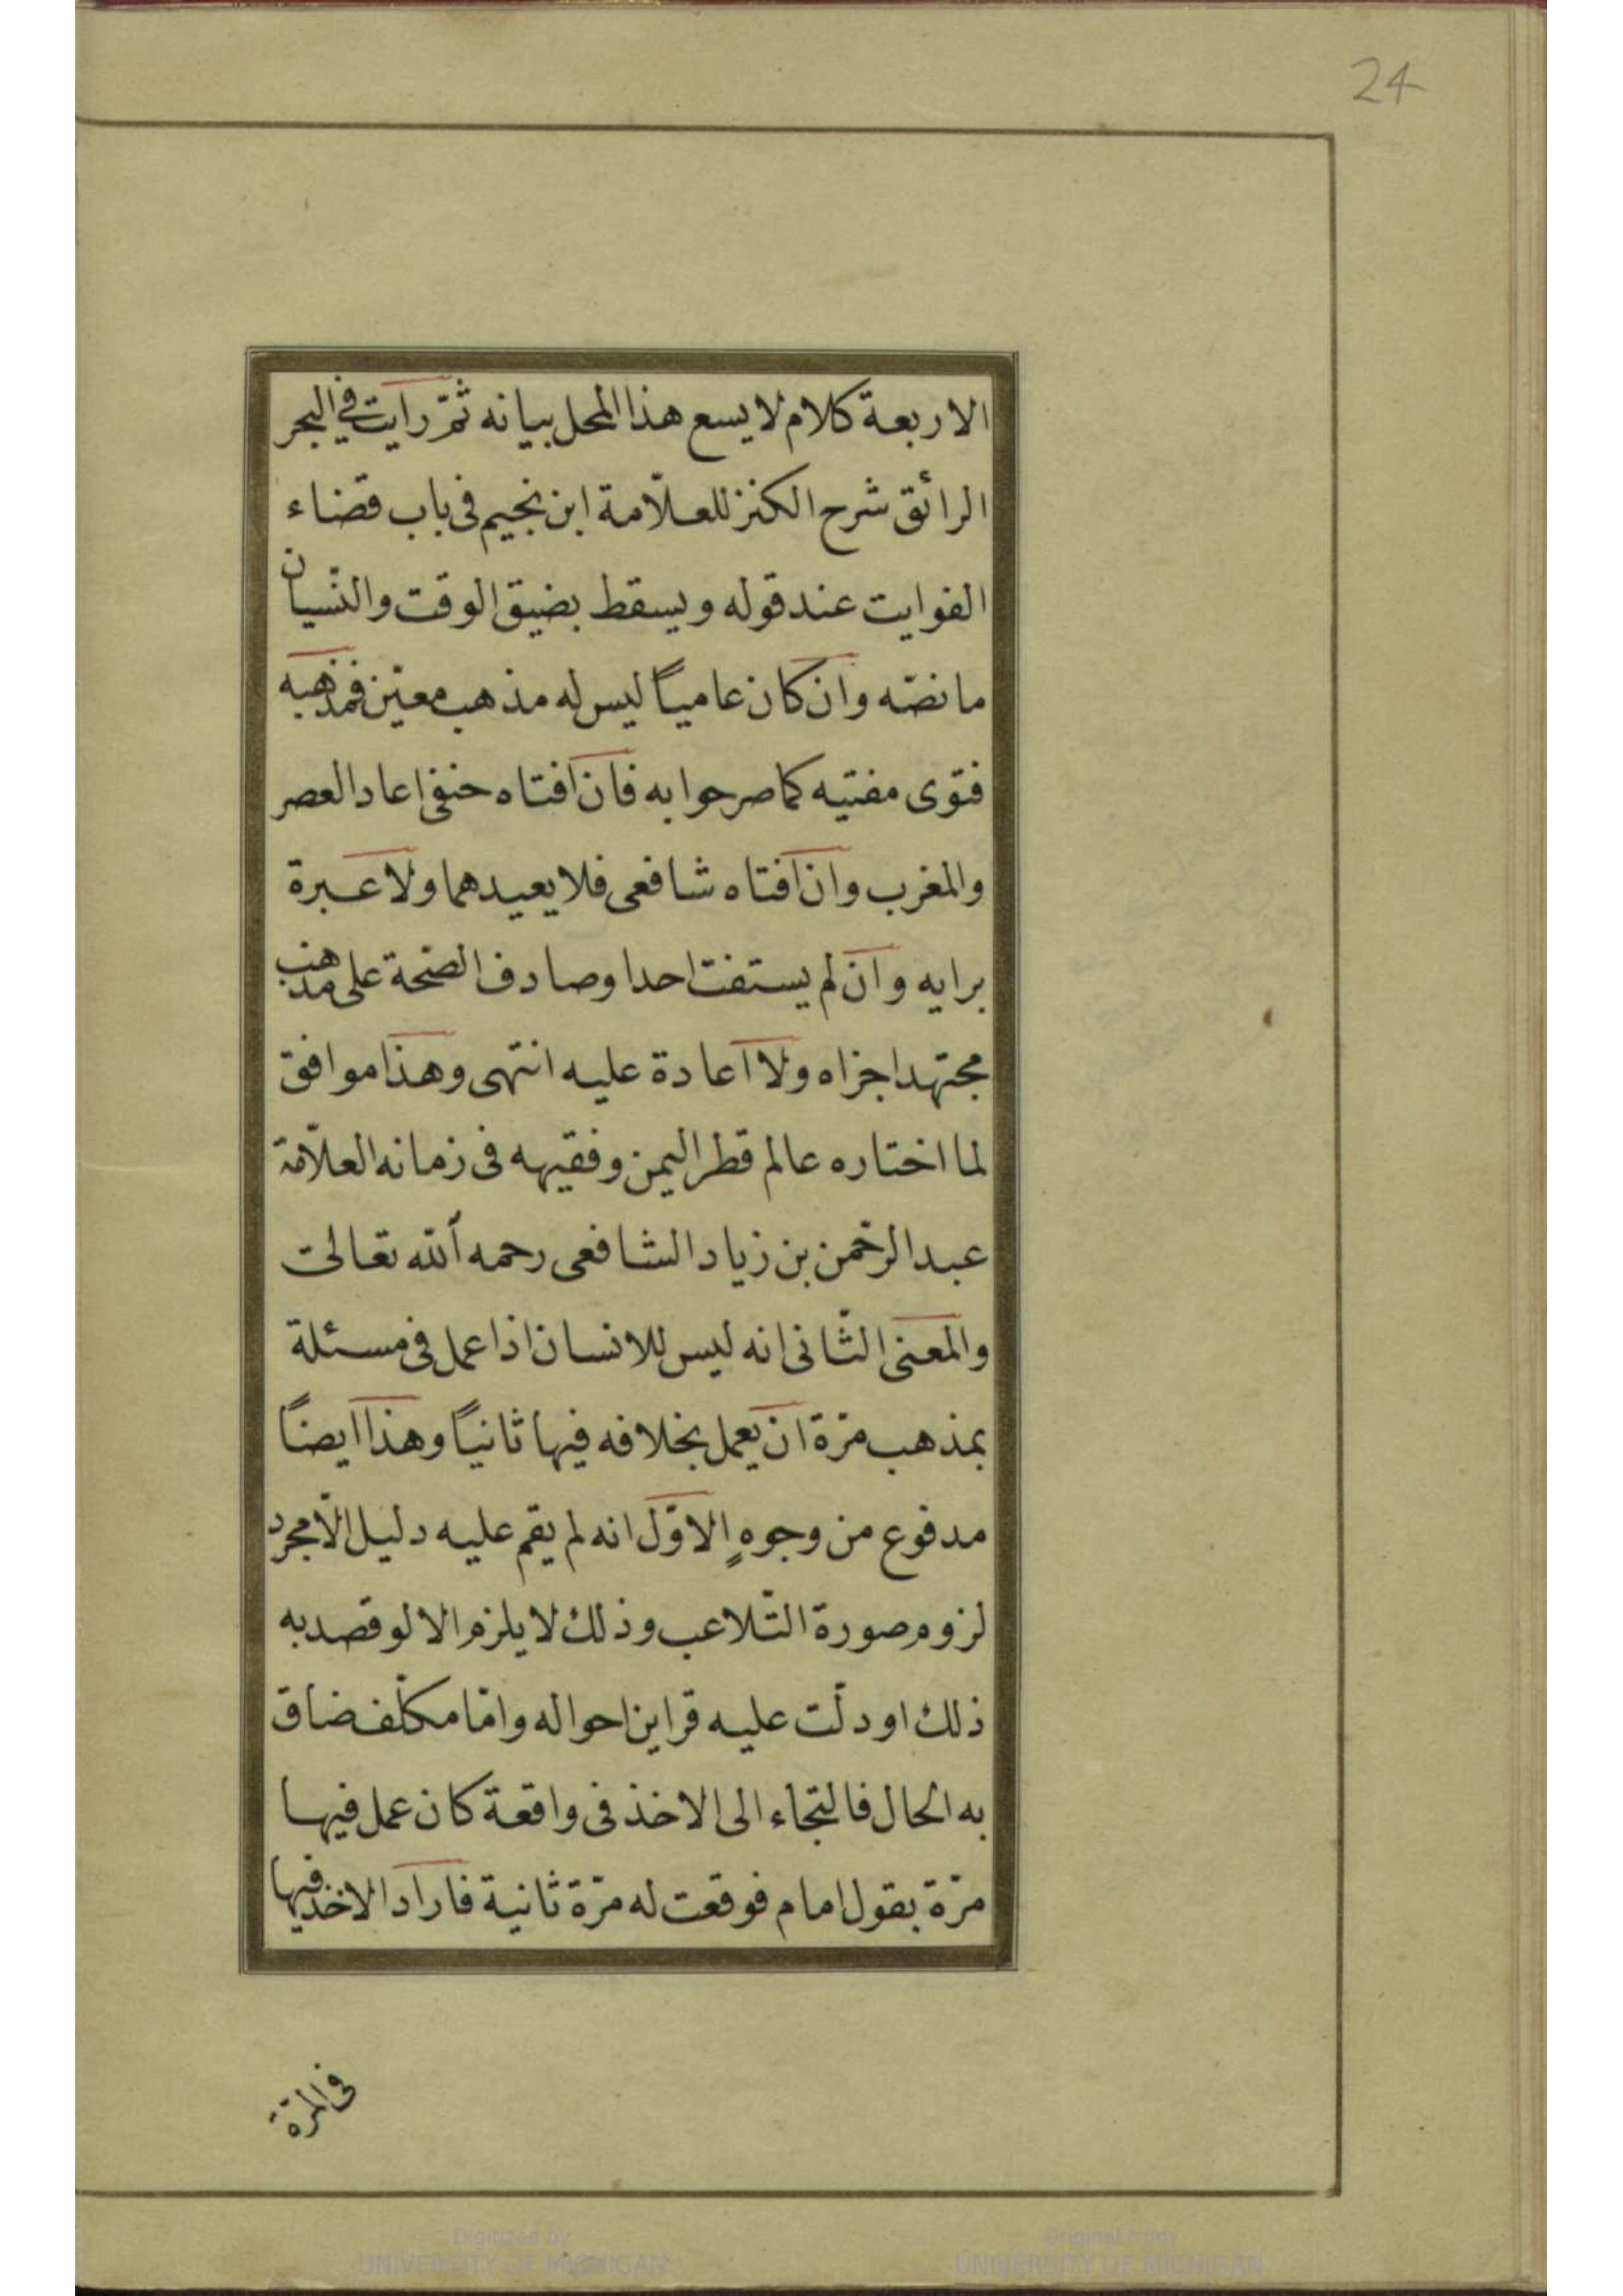 24
الاربعة كلام لا يسع هذا المحل بيانه ثمّ رايت في البحر
الرائق شرح الكنز للعلّامة ابن نجيم فى باب قضاء
الفوايت عند قوله ويسقط بضيق الوقت والنّسيان
ما نصّه وان كان عامياً ليس له مذهب معيّن فمذهبه
فتوى مفتيه كما صرحوا به فان افتاه حنفى اعاد العصر
والمغرب وان افتاه شافعى فلا يعيدهما ولا عبرة
برايه وان لم يستفت احدا وصادف الصّحة على مذهب
مجتهد اجزاه ولا اعادة عليه انتهى وهذا موافق
لما اختاره عالم قطر اليمن وفقيهه فى زمانه العلّامة
عبد الرحمن بن زياد الشافعى رحمه الله تعالى
والمعنى الثّانى انه ليس للانسان اذا عمل فى مسئلة
بمذهب مرّة ان يعمل بخلافه فيها ثانياً وهذا ايضاً
مدفوع من وجوهٍ الاوّل انه لم يقم عليه دليل الّا مجرد
لزوم صورة التّلاعب وذلك لا يلزم الا لو قصد به
ذلك او دلّت عليه قراين احواله وامّا مكلّف ضاق
به الحال فالتجاء الى الاخذ فى واقعة كان عمل فيها
مرّة بقول امام فوقعت له مرّة ثانية فاراد الاخذ فيها
فى المرّة
Digitized by
UNIVERSITY OF MICHIGAN
Original from
UNIVERSITY OF MICHIGAN